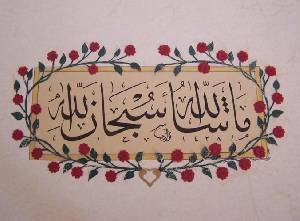 ما شاء الله سبحان الله